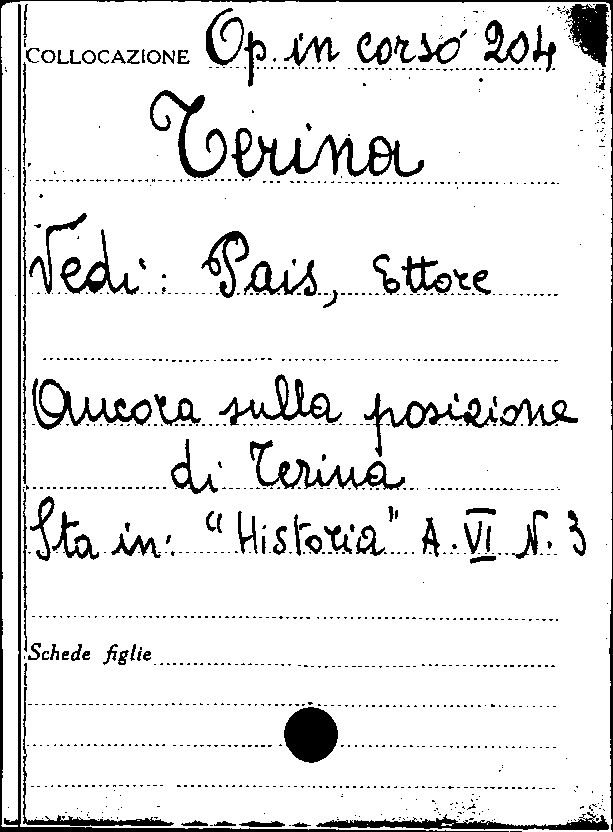 COLLOCAZIONE Op. in corso 204
Terina
Vedi: Pais, Ettore
Ancora sulla posizione
di Terina
Sta in: "Historia" A. VI N. 3
Schede figlie